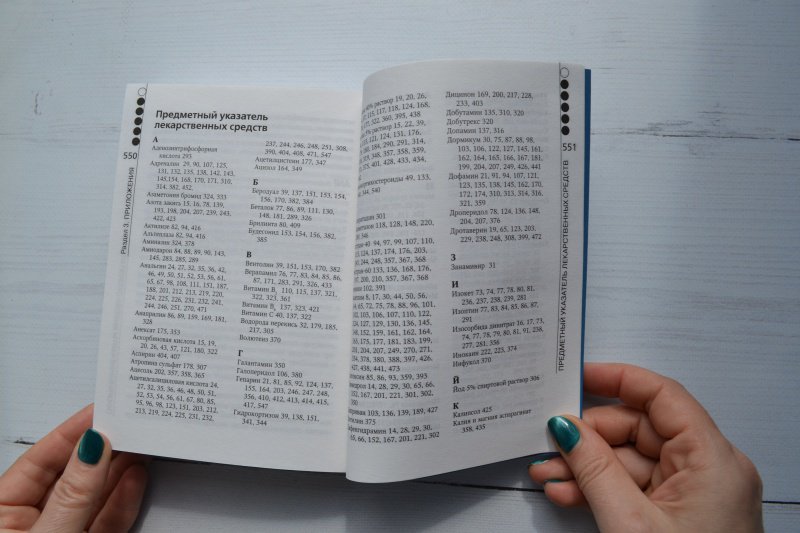 550
Раздел 3. ПРИЛОЖЕНИЯ
Предметный указатель
лекарственных средств
А
Аденозинтрифосфорная
кислота 293
Адреналин 29, 90, 107, 125,
131, 132, 135, 138, 142, 143,
145,154, 168, 170, 171, 310,
314, 382, 452.
Азаметония бромид 324, 333
Азота закись 15, 16, 78, 139,
193, 198, 204, 207, 239, 243,
422, 423
Актилизе 82, 94, 416
Альтеплаза 82, 94, 416
Аминазин 324, 378
Амиодарон 84, 88, 89, 90, 143,
145, 283, 285, 289
Анальгин 24, 27, 32, 35, 36, 42,
46, 49, 50, 51, 52, 53, 56, 61,
65, 67, 98, 108, 111, 151, 187,
188, 201, 212, 213, 219, 220,
224, 225, 226, 231, 232, 241,
244, 246, 251, 270, 471
Анаприлин 86, 89, 159, 169, 181,
328
Анексат 175, 353
Аскорбиновая кислота 15, 19,
20, 26, 43, 57, 121, 180, 322
Аспирин 404, 407
Атропина сульфат 178, 307
Ацесоль 202, 357, 358, 365
Ацетилсалициловая кислота 24,
27, 32, 35, 36, 42, 46, 50, 51,
52, 53, 54, 56, 61, 67, 80, 85,
95, 96, 98, 123, 151, 203, 212,
213, 219, 224, 225, 231, 232,
237, 244, 246, 248, 251, 308,
390, 404, 408, 471, 547
Ацетилцистеин 177, 347
Ацизол 164, 349
Б
Беродуал 39, 137, 151, 153, 154,
156, 170, 382, 384
Беталок 77, 86, 89, 111, 130,
148, 181, 289, 326
Брилинта 80, 409
Будесонид 153, 154, 156, 382,
385
В
Вентолин 39, 151, 153, 170, 382
Верапамил 76, 77, 83, 84, 85, 86,
87, 171, 283, 291, 326, 433
Витамин В 110, 115, 137, 321,
322, 323, 361
Витамин В 137, 323
Витамин С 40, 137, 322
Водорода перекись 32, 179, 185,
217, 305
Волютенз 370
Г
Галантамин 350
Галоперидол 106, 380
Гепарин 21, 81, 85, 92, 124, 137,
155, 164, 203, 246, 247, 248,
356, 410, 412, 413, 414, 415,
417, 547
Гидрокортизон 39, 138, 151,
341, 344
40% раствор 19, 20, 26,
115, 117, 118, 124, 168,
322, 360, 395, 398
раствор 15, 22, 39,
121, 124, 131, 176,
184, 290, 291, 314,
348, 357, 358, 359,
401, 428, 433, 434,
кортикостероиды 49, 133,
34, 540
301
118, 128, 148, 220,
346
40 94, 97, 99, 107, 110,
124, 137, 174, 176, 203,
244, 248, 357, 367, 368
60 133, 136, 168, 176,
200, 210, 357, 367, 368
102, 391
8, 17, 30, 44, 50, 56,
65, 72, 75, 78, 88, 96, 101,
103, 106, 107, 110, 122,
127, 129, 130, 136, 145,
152, 159, 161, 162, 164,
175, 177, 181, 183, 199,
204, 207, 249, 270, 271,
378, 380, 388, 399, 426,
438, 441, 473
85, 86, 93, 359, 393
14, 28, 29, 30, 65, 66,
167, 201, 221, 301, 302,
103, 136, 139, 189, 427
375
14, 28, 29, 30,
66, 152, 167, 201, 221, 302
Дицинон 169, 200, 217, 228,
233, 403
Добутамин 135, 310, 320
Добутрекс 320
Допамин 137, 316
Дормикум 30, 75, 87, 88, 98,
103, 106, 122, 127, 145, 161,
162, 164, 165, 166, 167, 181,
199, 204, 207, 249, 426, 441
Дофамин 21, 91, 94, 107, 121,
123, 135, 138, 145, 162, 170,
172, 174, 310, 313, 314, 316,
321, 359
Дроперидол 78, 124, 136, 148,
204, 207, 376
Дротаверин 19, 65, 123, 203,
229, 238, 248, 308, 399, 472
З
Занамивир 31
И
Изокет 73, 74, 77, 78, 80, 81,
236, 237, 238, 239, 281
Изоптин 77, 83, 84, 85, 86, 87,
291
Изосорбида динитрат 16, 17, 73,
74, 77, 78, 79, 80, 81, 91, 238,
277, 281, 356
Инокаин 222, 225, 374
Инфукол 370
Й
Йод 5% спиртовой раствор 306
К
Калипсол 425
Калия и магния аспарагинат
358, 435
551
ПРЕДМЕТНЫЙ УКАЗАТЕЛЬ ЛЕКАРСТВЕННЫХ СРЕДСТВ